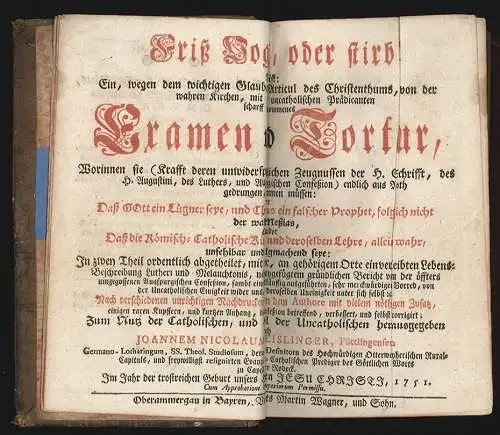 Friß Vog, oder stirb
ist:
Ein, wegen dem wichtigen Glaub Articul des Christenthums, von der
wahren Kirchen, mit uncatholischen Prädicanten
scharff ommenes
Examen d Tortur,
Worinnen sie (Krafft deren unwiders lichen Zeugnussen der H. Schrifft, des
H. Augustini, des Luthers, und Au ischen Confeßion) endlich aus Noth
gedrungen nen müssen:
Daß GOtt ein Lügner seye, und Ch ein falscher Prophet, folglich nicht
der wa Meßias,
oder
Daß die Römisch-Catholische K und derselben Lehre, allein wahr,
unfehlbar und machend seye:
In zwey Theil ordentlich abgetheilet, mit an gehörigem Orte einverleibten Lebens-
Beschreibung Lutheri und Melanchtonis, gefügtem gründlichen Bericht von der öffters
umgegossenen Augspurgischen Confeßion, sambt ausgeführten, sehr merckwürdigen Vorred, von
der Uncatholischen Uneinigkeit wider uns derselben Uneinigkeit unter sich selbst
Nach verschiedenen unrichtigen Nachdrucken dem Authore mit vielem nöthigen Zusatz,
einigen raren Kupffern, und kurtzen Anhang betreffend, verbessert, und selbst corrigiret;
Zum Nutz der Catholischen, und der Uncatholischen herausgegeben
JOANNEM NICOLAU EISLINGER, Püttlingensem
Germano-Lotharingum, SS. Theol. Studiosum, Definitorn des Hochwürdigen Otterweyherischen Rural-
Capituls, und freywilligst resignirten Catholischen Prediger des Göttlichen Worts
zu Capell Rodeck.
Im Jahr der trostreichen Geburt unsers JESU CHRISTI, 1751.
Cum Approbatione Superiorum Permissu.
Oberammergau in Bayren, Martin Wagner, und Sohn.